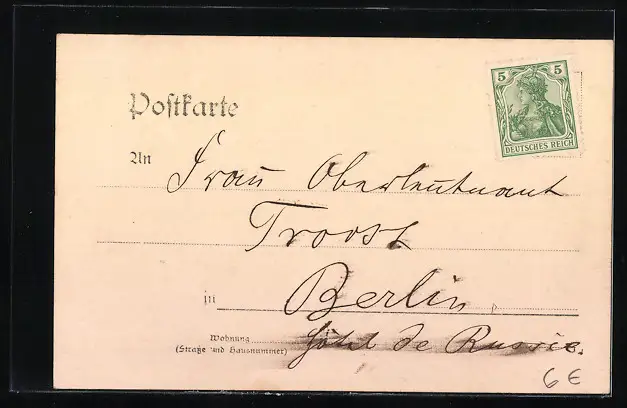 5 5
DEUTSCHES REICH
Postkarte
An Frau Oberleutnant
Troost
in Berlin,
Wohnung
(Straße und Hausnummer) Hôtel de Russie.
6€